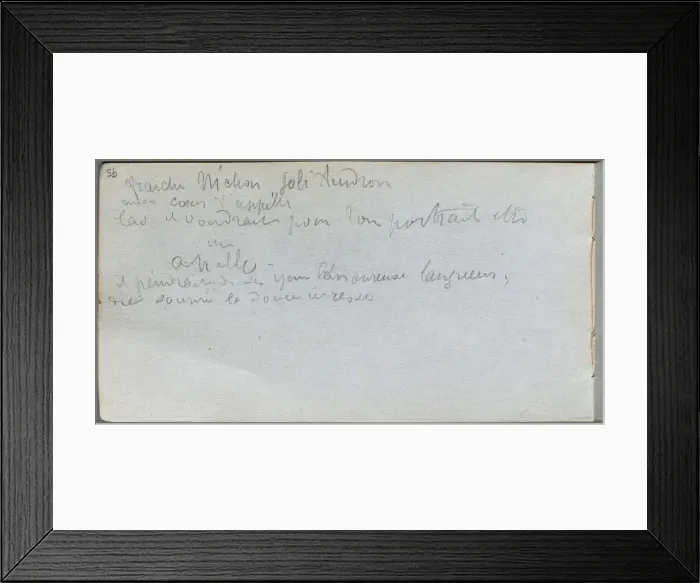 56
fraiche Nichon Joli tendron
mon coeur t'appelle
Car il voudrait pour ton portrait être
un
apelle
il peindrait de tes yeux l'amoureuse langueur,
la douce ivresse